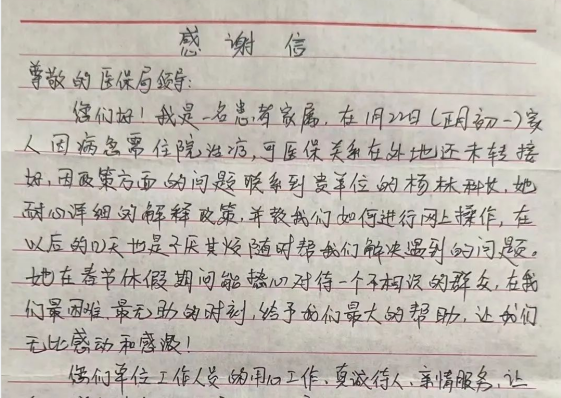 感谢信
尊敬的医保局领导:
您们好!我是一名患者家属,在1月22日(正月初一)家
人因病急需住院治疗,可医保关系在外地还未转接
好,因政策方面的问题联系到贵单位的杨林科长,她
耐心详细的解释政策,并教我们如何进行网上操作,在
以后的几天也是不厌其烦随时帮我们解决遇到的问题。
她在春节休假期间能热心对待一个不相识的群众,在我
们最困难、最无助的时刻,给予我们最大的帮助,让我们
无比感动和感激!
您们单位工作人员的用心工作、真诚待人、亲情服务,让